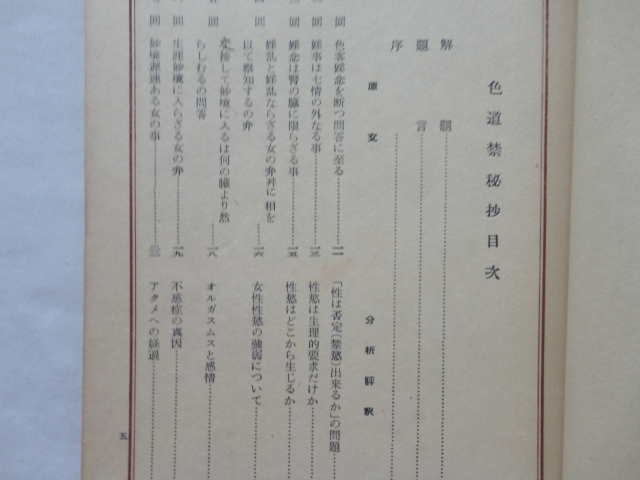 色道禁秘抄目次
解題
題言
序
原文
分析評釈
回 色客婬念を断つ問答に至る 一一
「性は否定(禁慾)出来るか」の問題
回 婬事は七情の外なる事 一三
性慾は生理的要求だけか
回 婬念は腎の臓に限らざる事 一五
性慾はどこから生じるか
回 婬乱と婬乱ならざる女の弁并に相を
以て察知するの弁 一六
女性性慾の強弱について
回 交接して妙境に入るは何の臓より然
らしむるの問答 一八
オルガスムスと感情
回 生涯妙境に入らざる女の弁 一九
不感症の真因
回 妙境遅速ある女の事
アクメへの経過
五